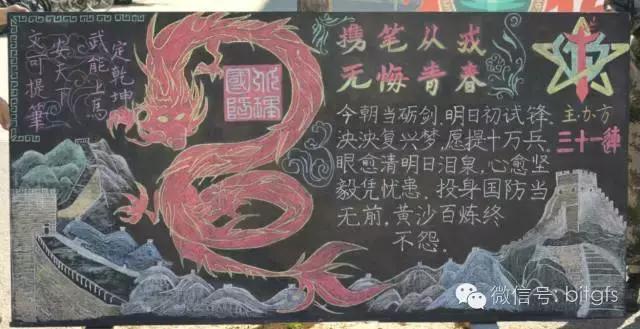 文可提筆
安天下
武能上馬
定乾坤
北理
國防
携笔从戎
无悔青春
今朝当砺剑,明日初试锋.
泱泱复兴梦,愿提十万兵.
眼愈清明日泪泉,心愈坚
毅凭忧患,投身国防当
无前,黄沙百炼终
不怨.
主办方
三十一
微信号: bitgfs